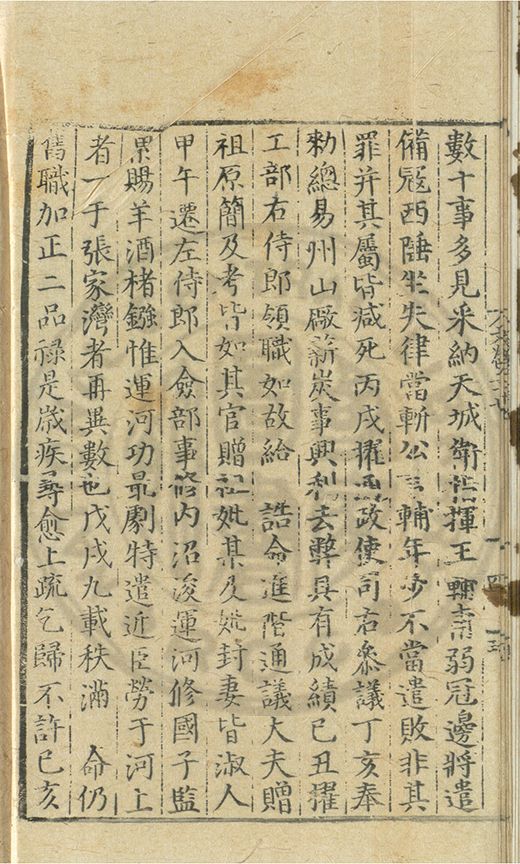 數十事多見采納天城衛指揮王輔素弱冠邊將遣
備冦西陲坐失律當斬公言輔年少不當遣敗非其
罪并其屬皆減死丙戌擢通政使司右叅議丁亥奉
勑總易州山厰薪炭事興利去弊具有成績己丑擢
工部右侍郎領職如故給 誥命進階通議大夫贈
祖原簡及考皆如其官贈祖妣某及妣封妻皆淑人
甲午遷左侍郎入僉部事修内沼浚運河修國子監
累賜羊酒楮鏹惟運河功最劇特遣近臣勞于河上
者一于張家灣者再異數也戊戌九載秩滿 命仍
舊職加正二品祿是歳疾尋愈上疏乞歸不許己亥